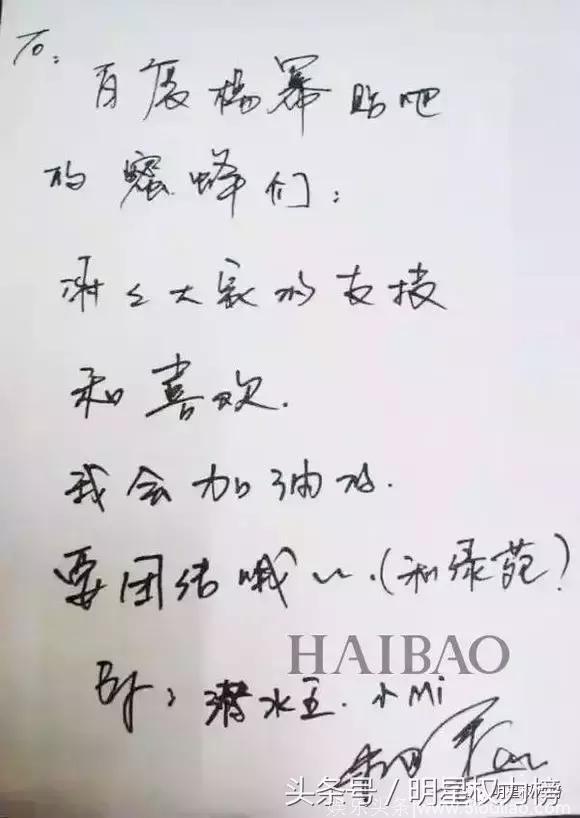 To:
百度杨幂贴吧
的蜜蜂们:
谢谢大家的支持
和喜欢.
我会加油的.
要团结哦~.(和绿苑)
HAIBAO
By: 潜水王.小Mi
头条号/明星权力榜